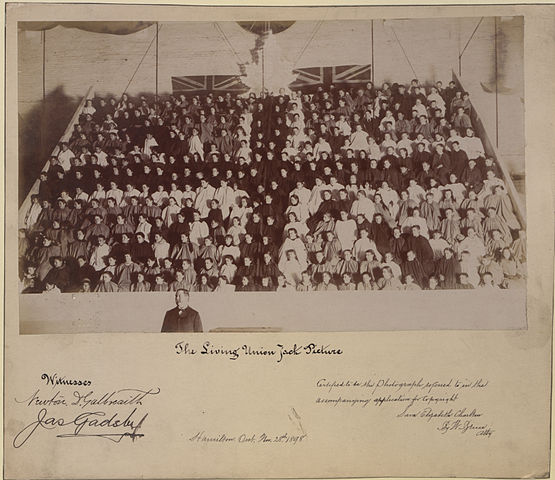 The Living Union Jack Picture
Witnesses
Newton D. Galbraith
Jas Gadsby
Certified to be the Photograph referred to in the
accompanying application for Copyright
Sara Elizabeth
By W.
Atty
Hamilton Ont. Nov. 28th 1898